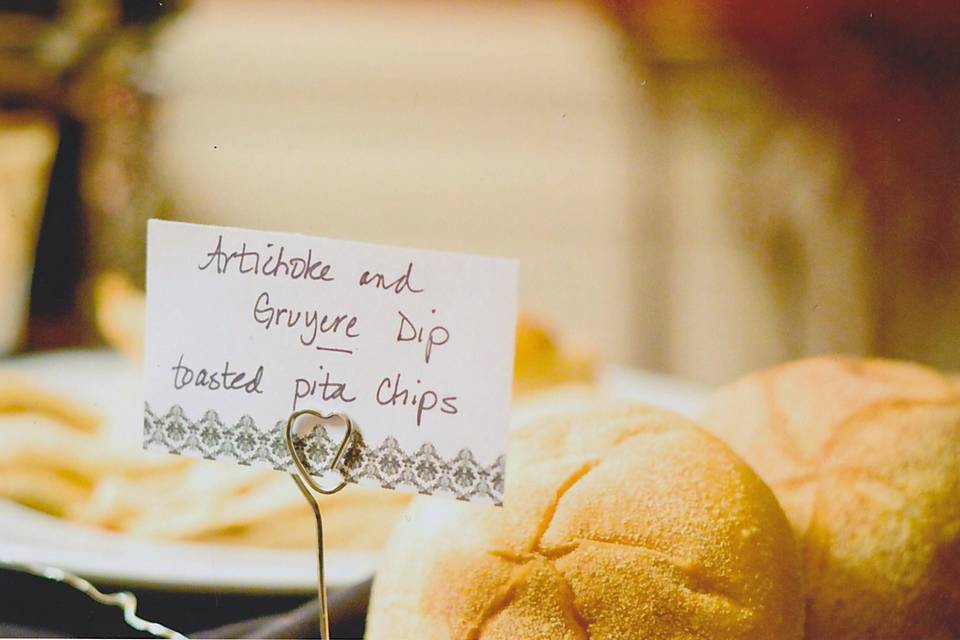 Artichoke and
Gruyere Dip
toasted pita Chips